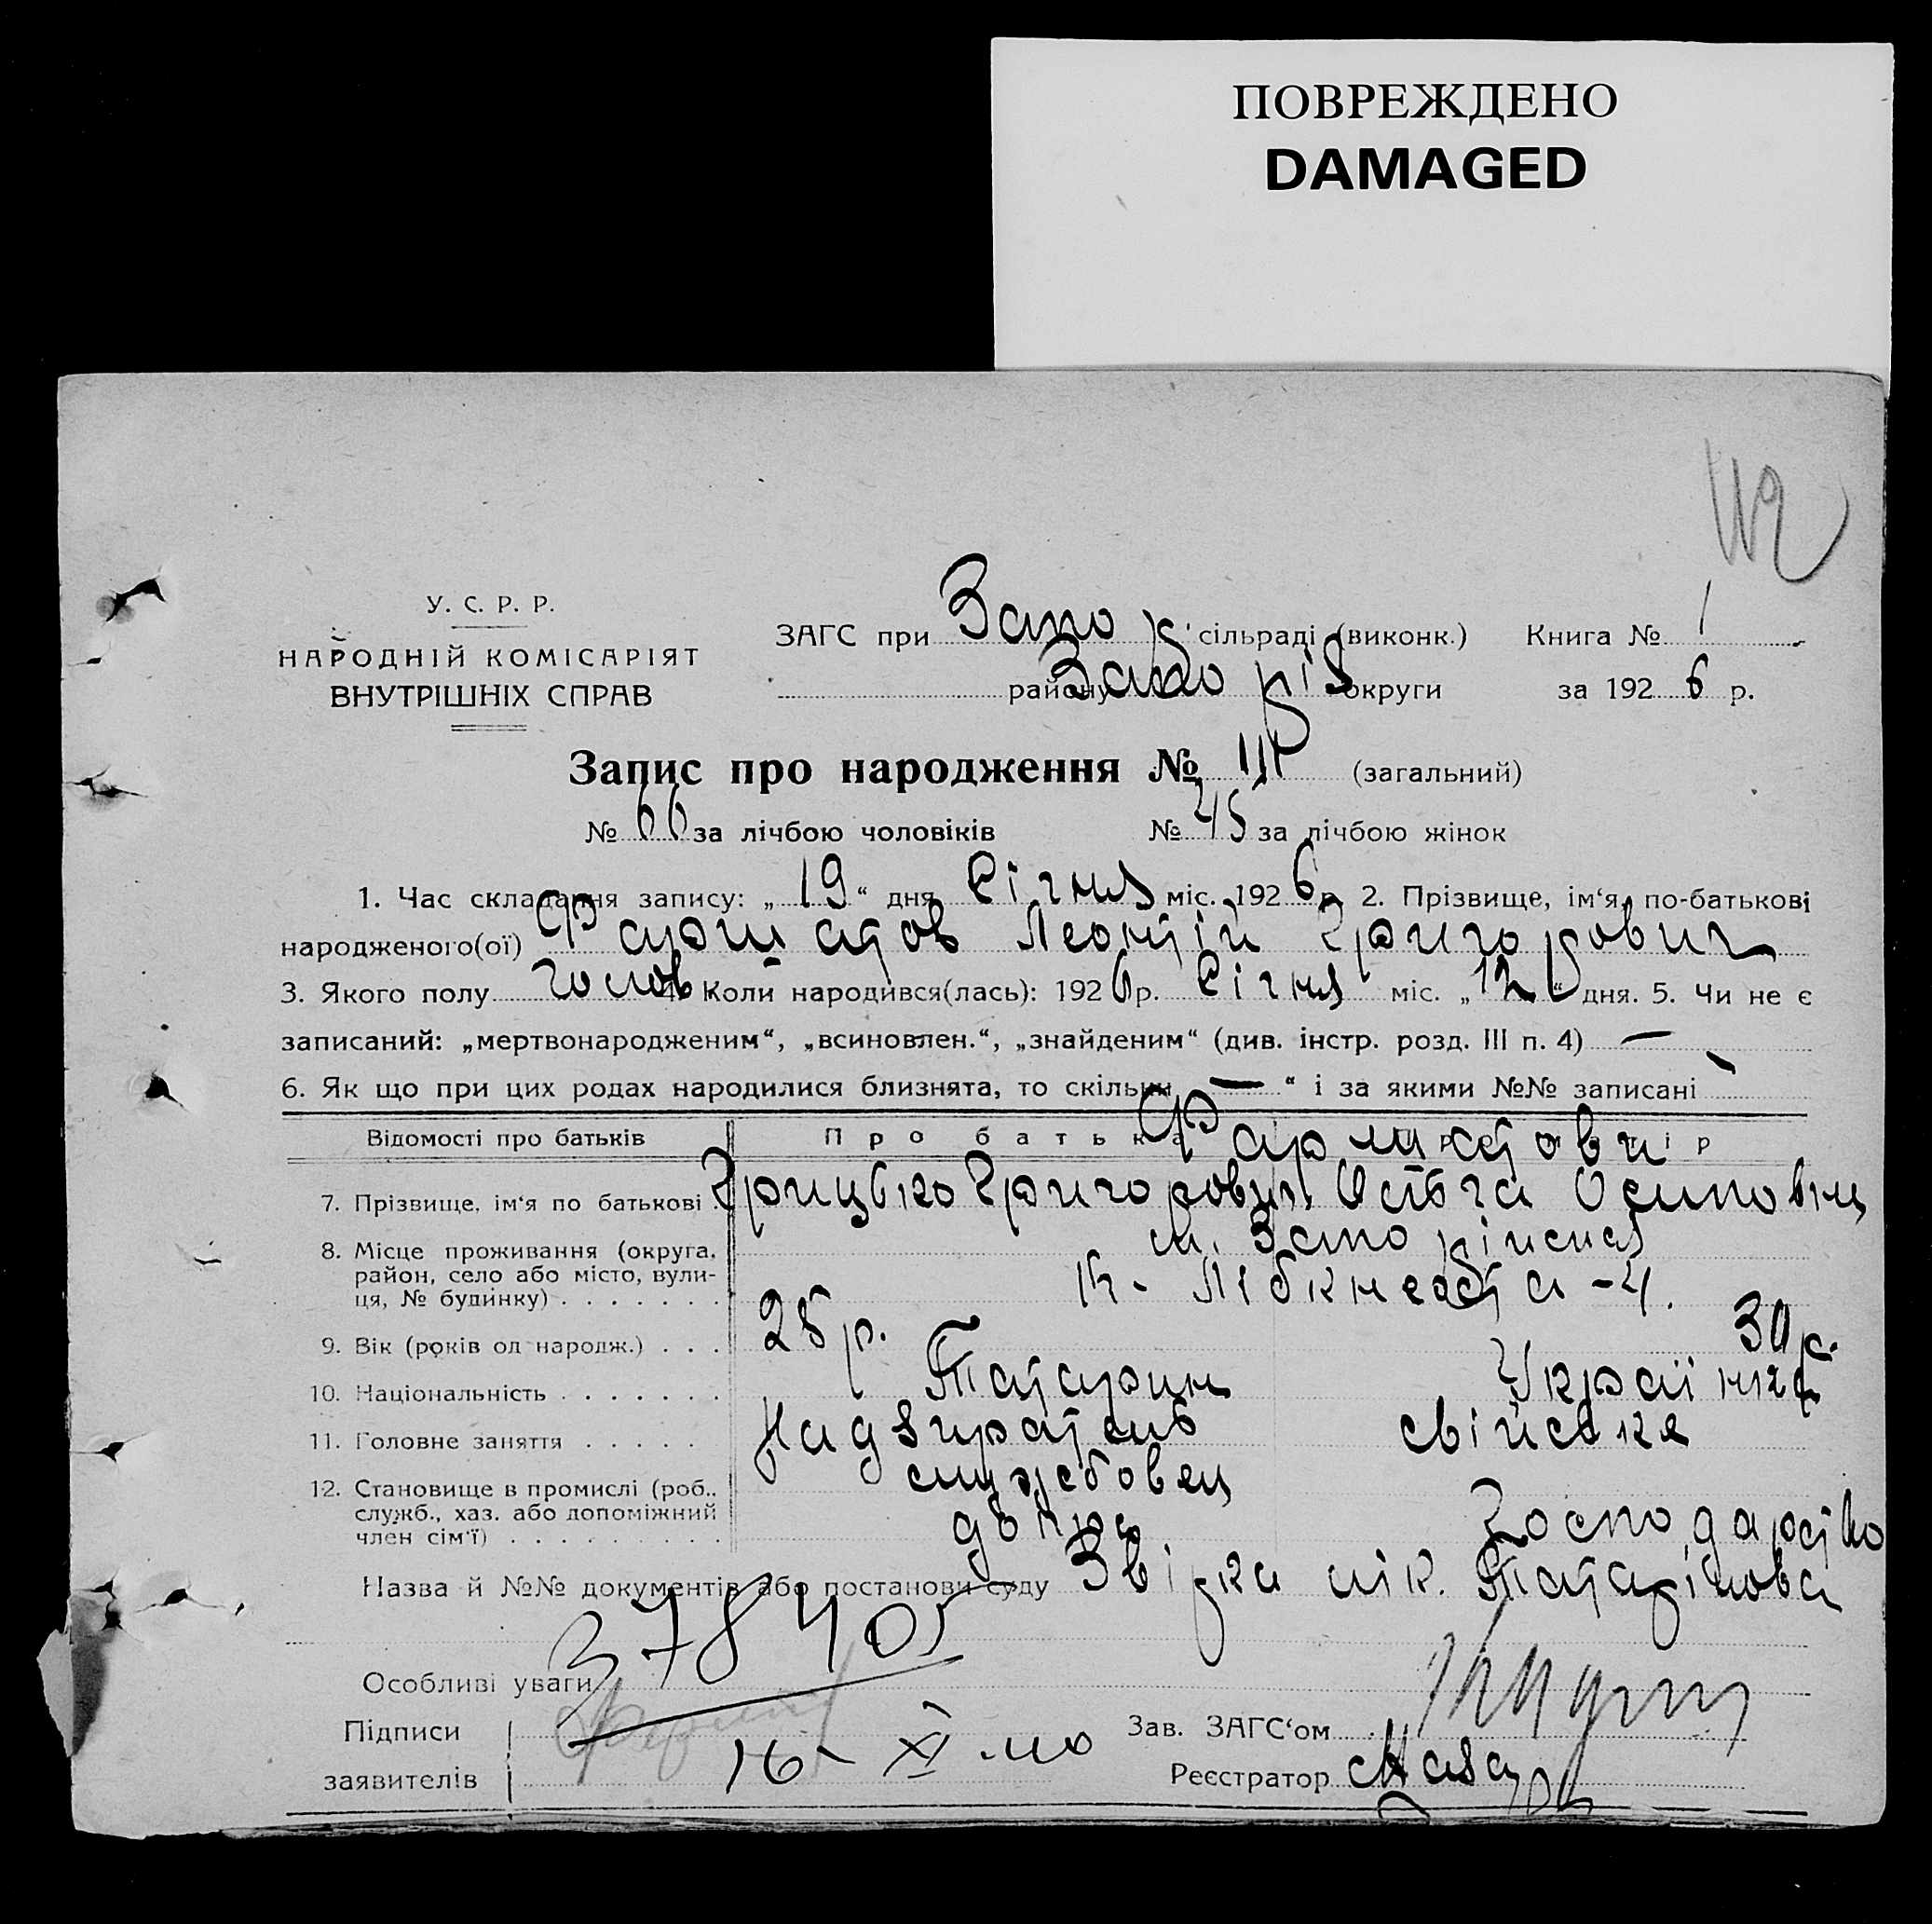 ПОВРЕЖДЕНО
DAMAGED
112
У. С. Р. Р.
НАРОДНІЙ КОМІСАРІЯТ
ВНУТРІШНІХ СПРАВ
ЗАГС при Запоріз. сільраді (виконк.) Книга № 1
району Запоріз округи за 1926 р.
Запис про народження № 111 (загальний)
№ 66 за лічбою чоловіків № 45 за лічбою жінок
1. Час складання запису: „19“ дня Січня міс. 1926 р. 2. Прізвище, ім‘я, по-батькові
народженого(ої) Фарматов Леонтій Григорович
3. Якого полу чолов. 4. Коли народився(лась): 1926 р. Січня міс. „12“ дня. 5. Чи не є
записаний: „мертвонародженим“, „всиновлен.“, „знайденим“ (див. інстр. розд. III п. 4) —
6. Як що при цих родах народилися близнята, то скільки — “ і за якими №№ записані
Відомості про батьків Про батька Про матір
Фарматови
7. Прізвище, ім‘я по батькові Грицько Григорович Осиповна
8. Місце проживання (округа, район, село або місто, вулиця, № будинку) м. Запоріжжя
К. Лібкнехта - 4.
9. Вік (років од народж.) 25 р. 30 р.
10. Національність Татарин Українка
11. Головне заняття Надзиратель свійське
12. Становище в промислі (роб., служб., хаз. або допоміжний член сім‘ї) службовец допра господарство
Назва й №№ документів або постанови суду Звірка лік. Татарінова
378405
Особливі уваги
Підписи Зав. ЗАГС‘ом
заявителів 16 - XI - Реєстратор